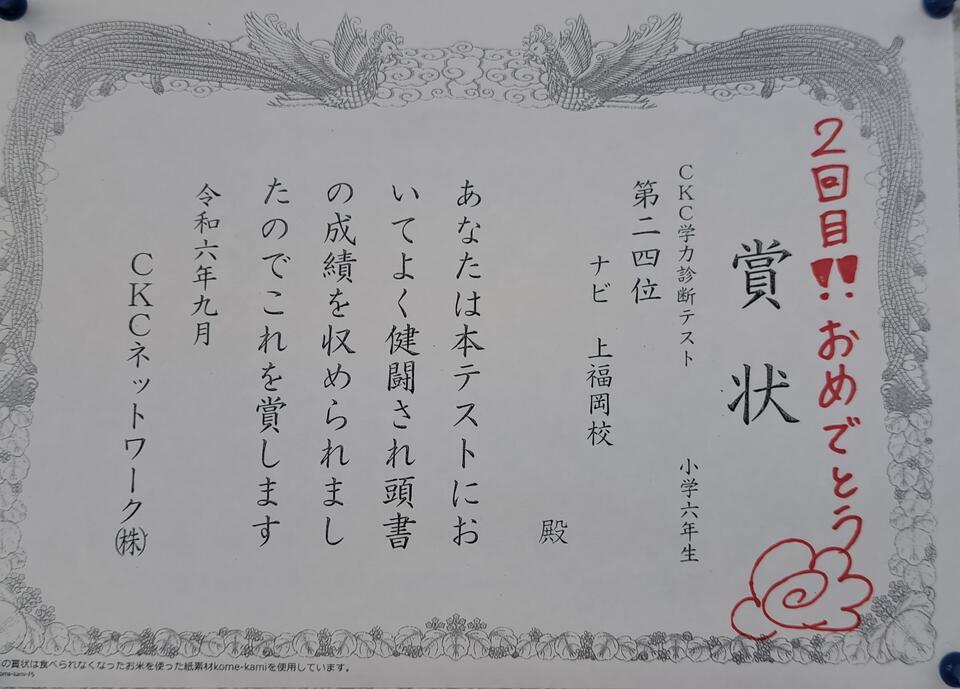 2回目!! おめでとう
賞状
CKC学力診断テスト 小学六年生
第二四位
ナビ 上福岡校
殿
あなたは本テストにお
いてよく健闘され頭書
の成績を収められまし
たのでこれを賞します
令和六年九月
CKCネットワーク㈱
の賞状は食べられなくなったお米を使った紙素材kome-kamiを使用しています。
ome-kami-FS